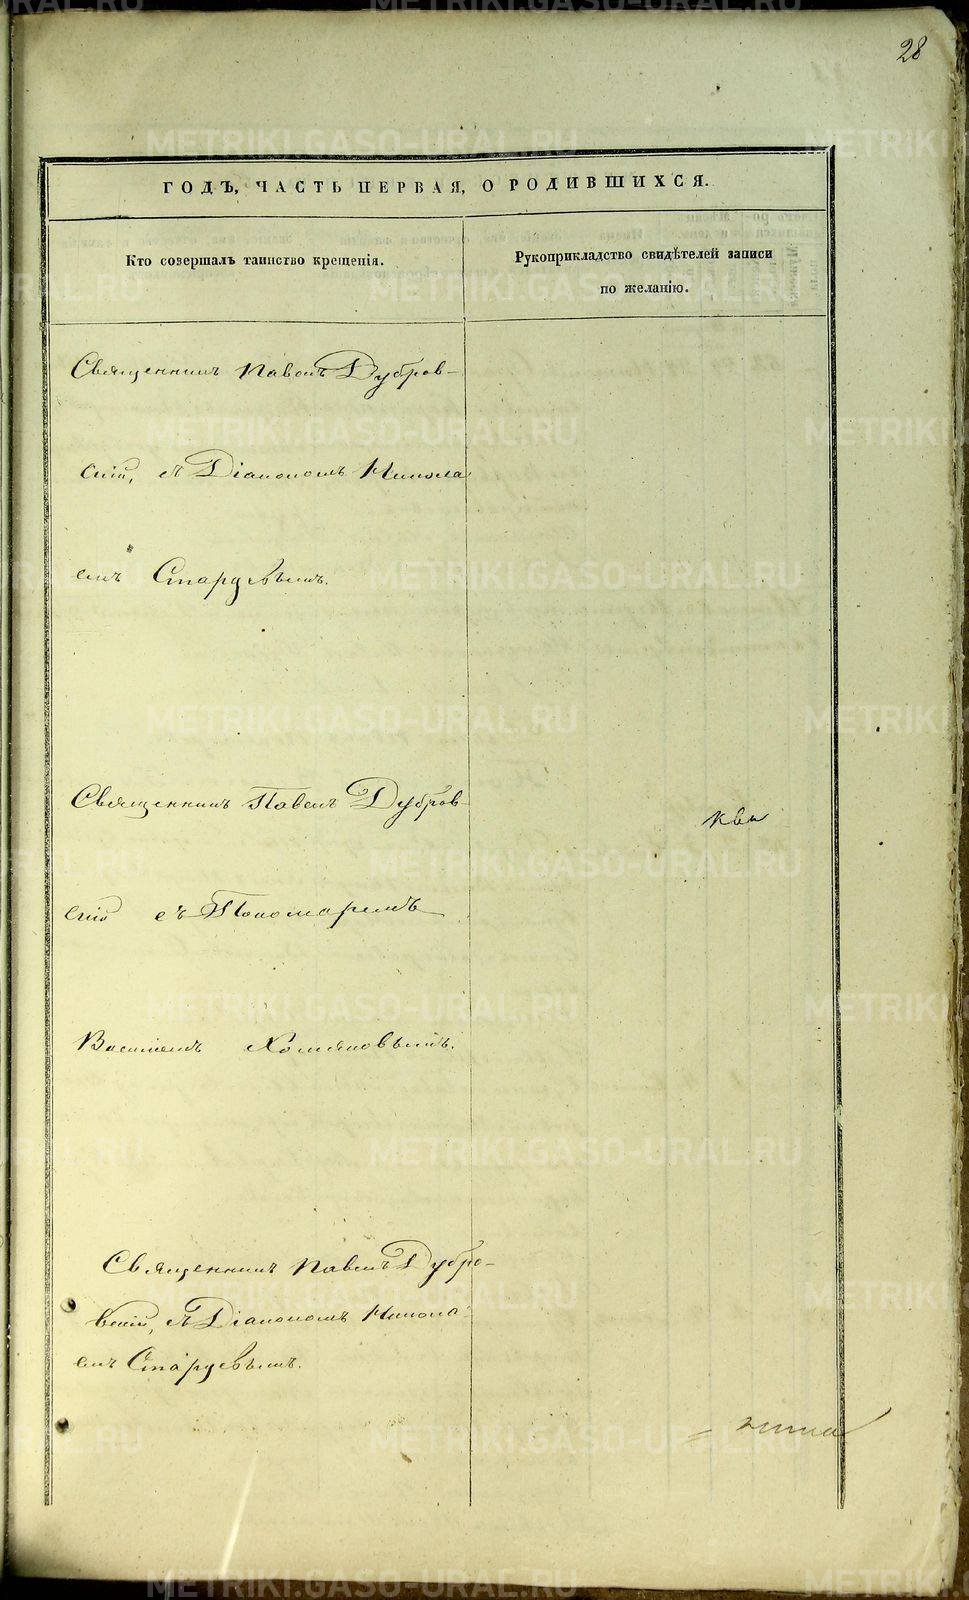 28
ГОДЪ, ЧАСТЬ ПЕРВАЯ, О РОДИВШИХСЯ.
Кто совершалъ таинство крещенія.
Рукоприкладство свидѣтелей записи
по желанію.
Священникъ Павелъ Дубров-
скій, съ Діакономъ Никола
емъ
Священникъ Павелъ Дубров-
скій съ Пономаремъ
Василіемъ Хомяковымъ.
Священникъ Павелъ Дубро-
вскій, съ Діакономъ Никола
емъ
METRIKI.GASO-URAL.RU